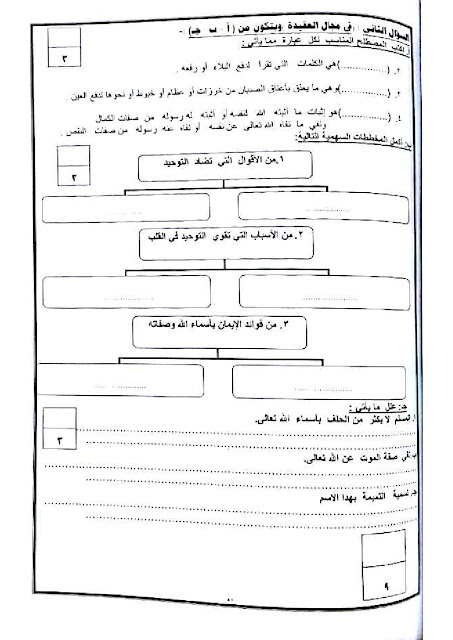 السؤال الثاني : (في مجال العقيدة ويتكون من ( أ - ب - جـ) :-
أ. اكتب المصطلح المناسب لكل عبارة مما يأتي:
٣
٢. (................)هي الكلمات التي تقرأ لدفع البلاء أو رفعه .
(................)وهي ما يعلق بأعناق الصبيان من خرزات أو عظام أو خيوط أو نحوها لدفع العين
٤. (................)هو إثبات ما أثبته الله لنفسه أو أثبته له رسوله من صفات الكمال
ونفي ما نفاه الله تعالى عن نفسه أو نفاه عنه رسوله من صفات النقص .
ب- أكمل المخططات السهمية التالية:
٣
١. من الأقوال التي تضاد التوحيد
٢. من الأسباب التي تقوي التوحيد في القلب
٣. من فوائد الإيمان بأسماء الله وصفاته
جـ: علل ما يأتي :
أ. المسلم لا يكثر من الحلف بأسماء الله تعالى.
٣
ب. نفي صفة الموت عن الله تعالى.
جـ. تسمية التميمة بهذا الاسم
٩